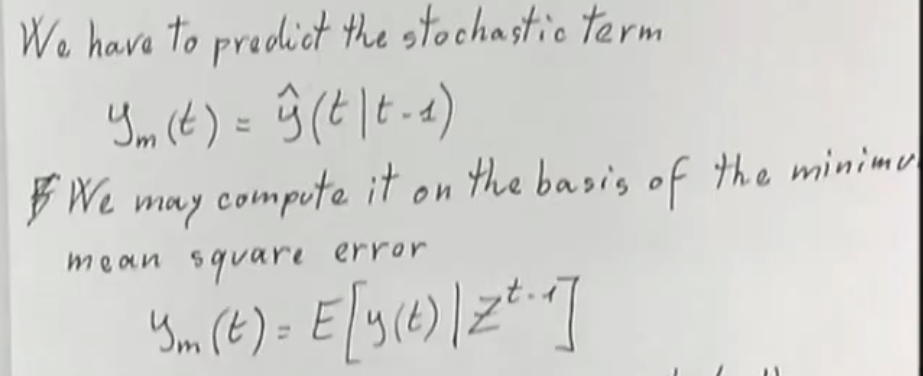 We have to predict the stochastic term
yₘ(t) = ŷ(t|t-1)
We may compute it on the basis of the minimu
mean square error
yₘ(t) = E[y(t)|Zᵗ⁻¹]